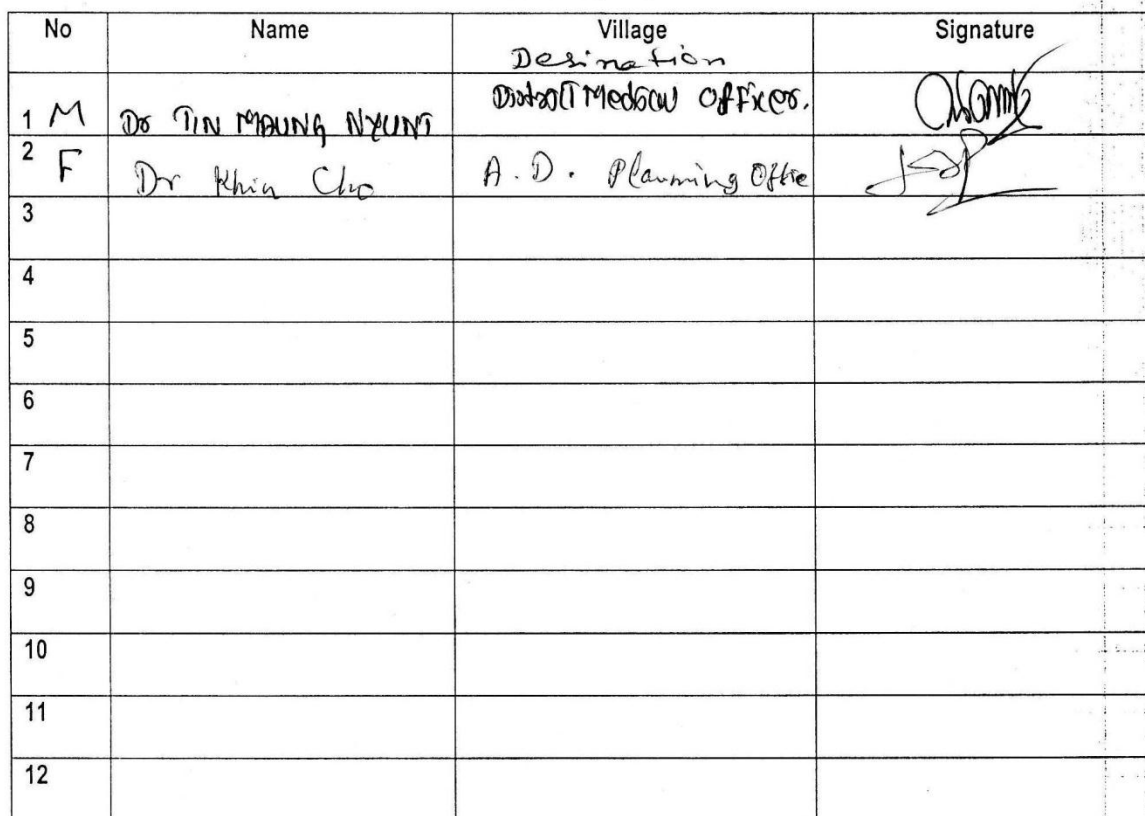 No Name Village Signature
Desination
1 M Dr TIN MAUNG NYUNT District Medical Officer.
2 F Dr Khin Cho A. D. Planning Offie
3
4
5
6
7
8
9
10
11
12